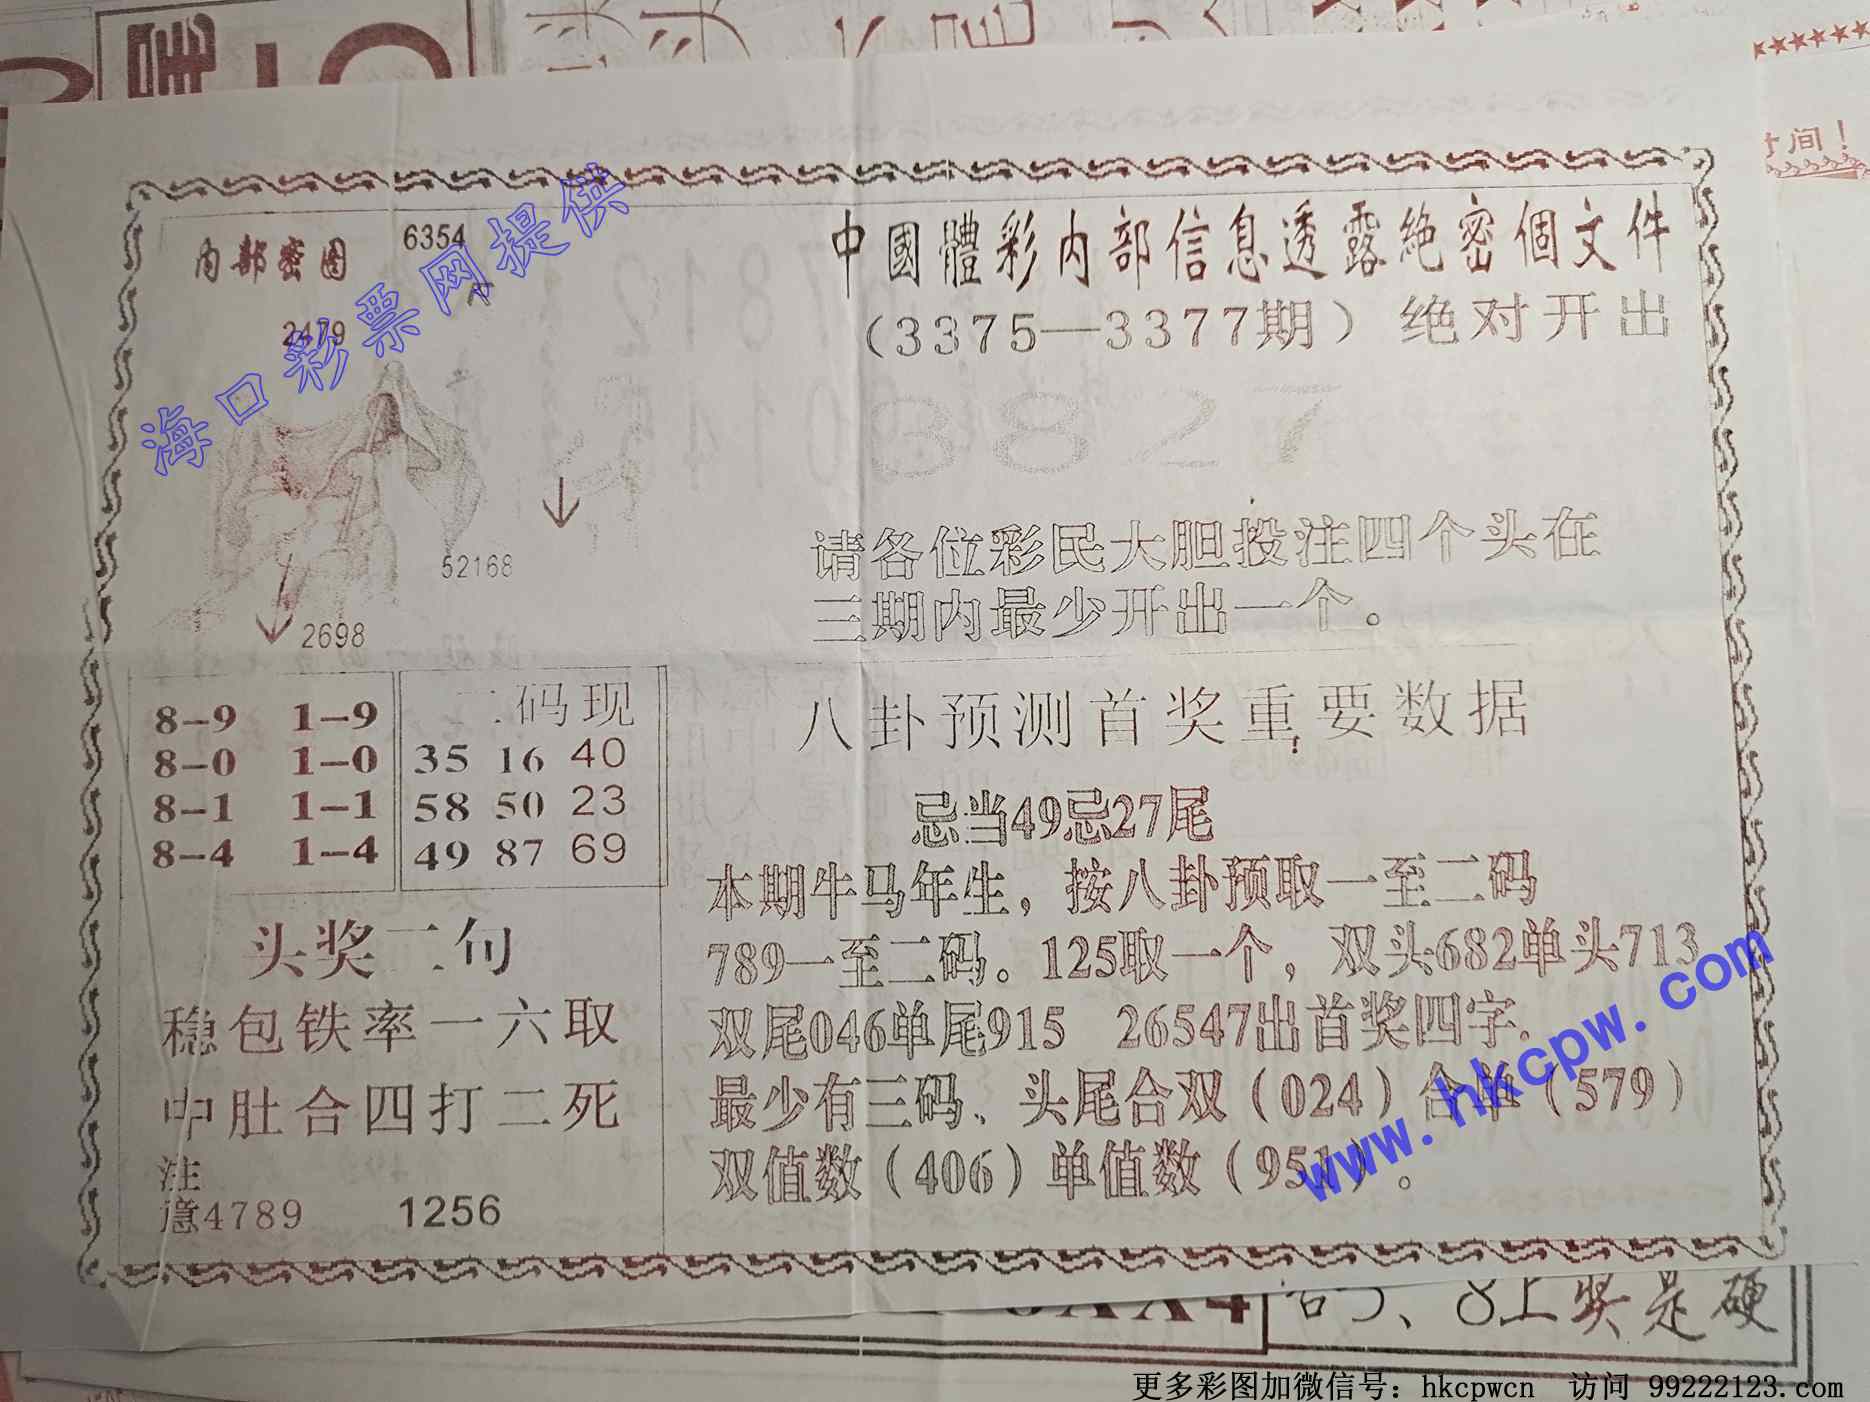 时间！
内部密图
6354
2479
52168
2698
海口彩票网提供
中國體彩内部信息透露絶密個文件
（3375—3377期）绝对开出
8827
请各位彩民大胆投注四个头在
三期内最少开出一个。
8-9 1-9
8-0 1-0
8-1 1-1
8-4 1-4
二码现
35 16 40
58 50 23
49 87 69
头奖二句
稳包铁率一六取
中肚合四打二死
注
意4789 1256
八卦预测首奖重要数据
忌当49忌27尾
本期牛马年生，按八卦预取一至二码
789一至二码。125取一个，双头682单头713
双尾046单尾915 26547出首奖四字.
最少有三码、头尾合双（024）合单（579）
双值数（406）单值数（951）。
www.hkcpw.com
8上奖是硬
更多彩图加微信号：hkcpwcn 访问 99222123.com